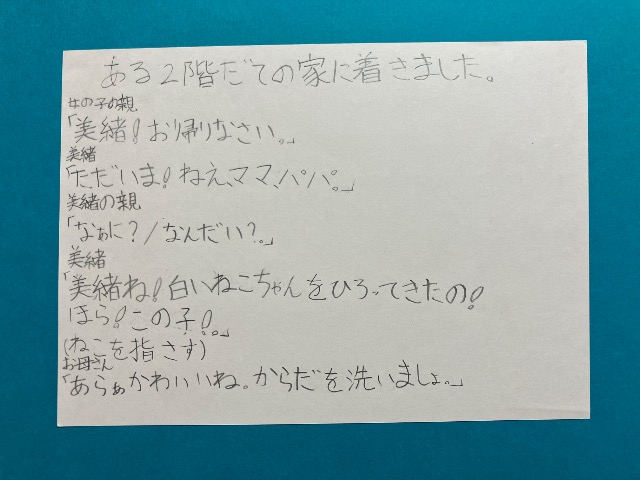 ある2階だての家に着きました。
女の子の親
「美緒!お帰りなさい。」
美緒
「ただいま!ねえ、ママ、パパ。」
美緒の親
「なぁに?/なんだい?。」
美緒
「美緒ね!白いねこちゃんをひろってきたの!
ほら!この子!。」
(ねこを指さす)
お母さん
「あらぁかわいいね。からだを洗いましょ。」